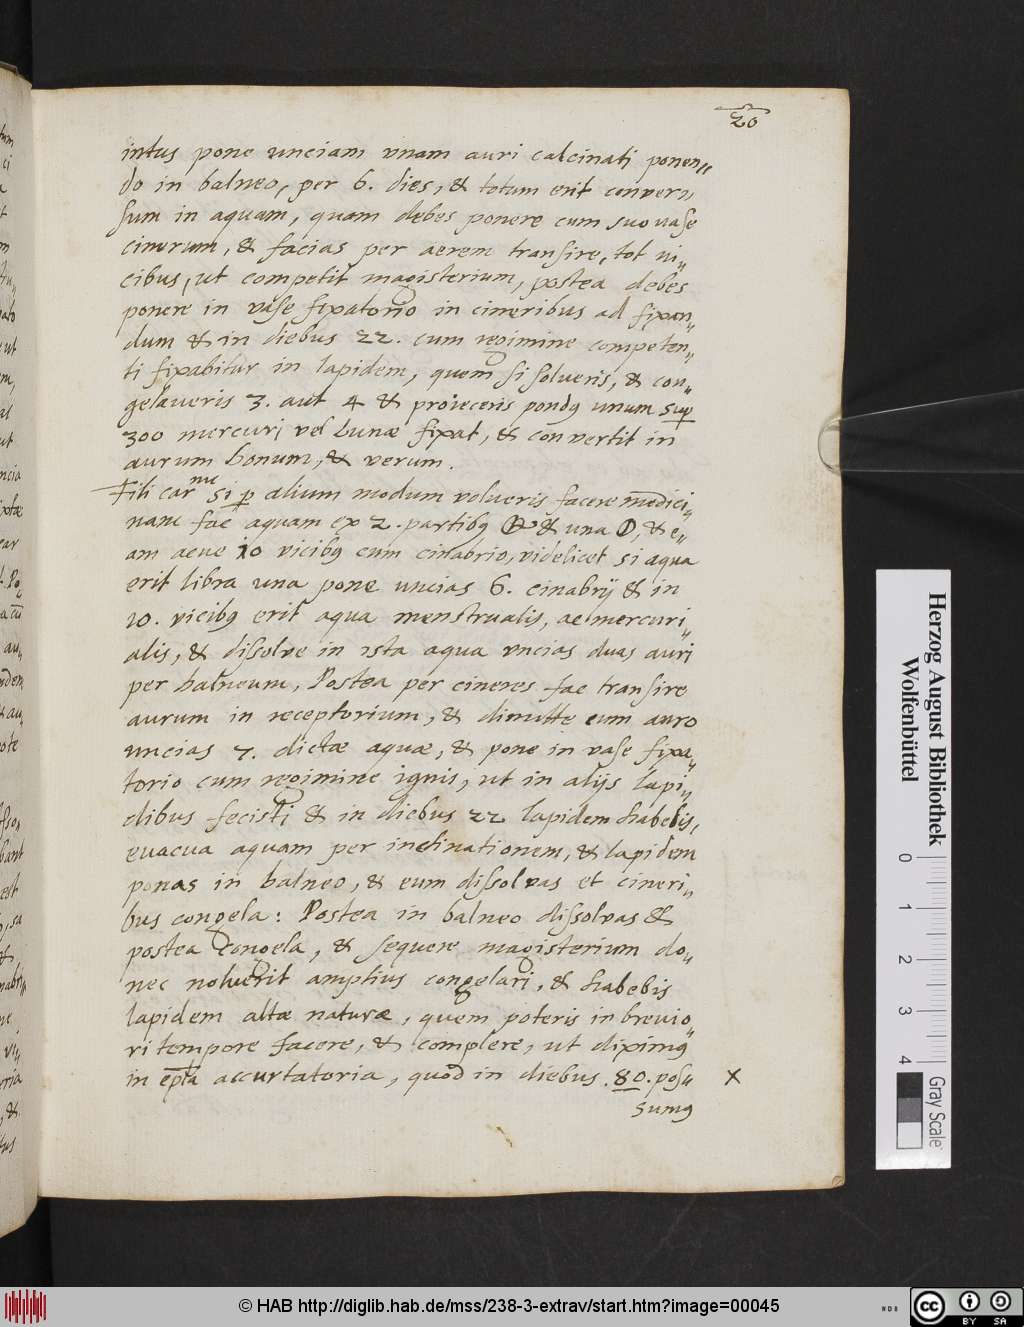 20
intus pone unciam vnam auri calcinati ponen„
do in balneo, per 6. dies, & totum erit conver„
sum in aquam, quam debes ponere cum suo vase
cinerum, & facias per aerem transire, tot vi„
cibus, ut competit magisterium, postea debes
ponere in vase fixatorio in cineribus ad fixan„
dum & in diebus 22. cum regimine competen„
ti fixabitur in lapidem, quem si solveris, & con„
gelaveris 3. aut 4 & proieceris pondꝰ unum sup
300 mercuri vel Lunæ fixat, & convertit in
aurum bonum, & verum.
Fili car^me si ꝑ alium modum volueris facere medici„
nam fac aquam ex 2. partibꝰ & una , & e„
am acue 10 vicibꝰ cum cinabrio, videlicet si aqua
erit libra una pone uncias 6. cinabrij & in
10. vicibꝰ erit aqua menstrualis, ac mercuri„
alis, & dissolve in ista aqua vncias duas auri
per balneum, Postea per cineres fac transire
aurum in receptorium, & dimitte cum auro
uncias 7. dictæ aquæ, & pone in vase fixa„
torio cum regimine ignis, ut in alijs lapi„
dibus fecisti & in diebus 22 lapidem habebis,
evacua aquam per inclinationem, & lapidem
ponas in balneo, & eum dissolvas et cineri„
bus congela: Postea in balneo dissolvas &
postea congela, & sequere magisterium do„
nec noluerit amplius congelari, & habebis
lapidem altæ naturæ, quem poteris in brevio„
ri tempore facere, & complere, ut diximꝰ
in ep̄la accurtatoria, quod in diebus .80. posu„ x
sumꝰ
Herzog August Bibliothek
Wolfenbüttel
0
1
2
3
4
Gray Scale
© HAB http://diglib.hab.de/mss/238-3-extrav/start.htm?image=00045
cc
BY SA